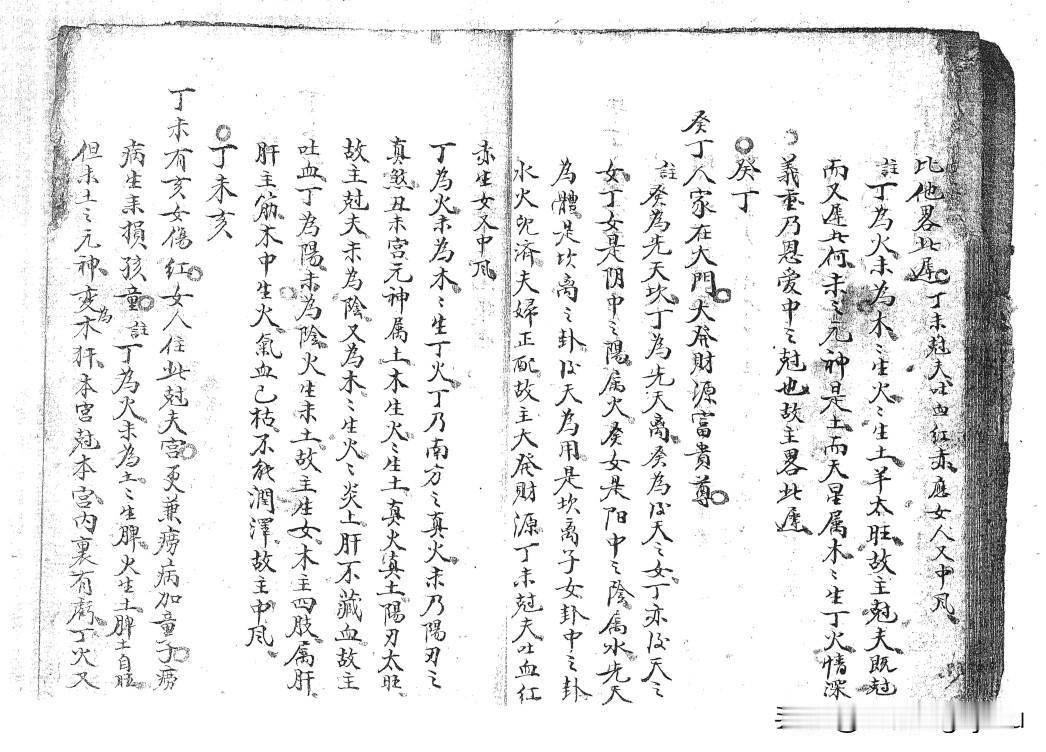 比他畧比遲丁未尅夫吐血紅赤應女人又中风
註丁為火未為木〻生火〻生土羊太旺故主尅夫既尅
而又遲比何未之元神是土而天星属木〻生丁火情深
義重乃恩爱中之尅也故主畧比遲
癸丁
癸丁人家在大門大發財源富貴尊
註癸為先天坎丁為先天離癸為後天之女丁亦後天之
女丁女是阴中之陽属火癸女是阳中之陰属水先天
為體是坎离之卦後天為用是坎离子女卦中之卦
水火既濟夫婦正配故主大發財源丁未尅夫吐血紅
赤生女又中风
丁為火未為木〻生丁火丁乃南方之真火未乃陽刃之
真煞丑未宫元神属土木生火〻生土真火真土陽刃太旺
故主尅夫未為陰又為木〻生火〻炎土肝不藏血故主
吐血丁為陽未為陰火生未土故主生女木主四肢属肝
肝主筋木中生火氣血已枯不能潤澤故主中风
丁未亥
丁未有亥女傷紅女人住此尅夫宫更兼痨病加童子痨
病生来損孩童註丁為火未為土〻生脾火生土脾土自旺
但未土之元神变為木犴本宫尅本宫内裏有虧丁火又